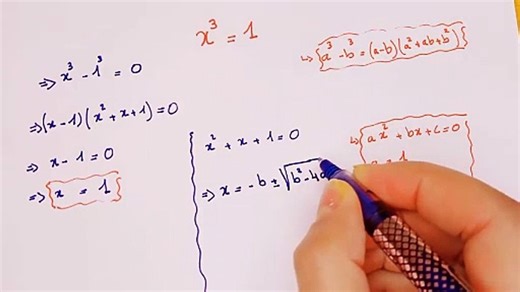 x³ = 1
↳ a³ - b³ = (a-b)(a² + ab + b²)
⇒ x³ - 1³ = 0
⇒ (x-1)(x² + x + 1) = 0
⇒ x - 1 = 0
⇒ x = 1
x² + x + 1 = 0
⇒ x = -b ± √b² - 4a
↳ ax² + bx + c = 0
a = 1